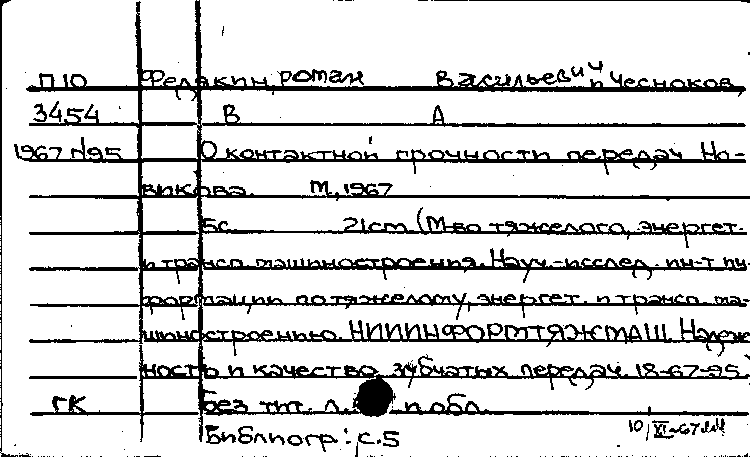 П10 Федякин, Роман Васильевич и Чесноков,
3454 В А
1967 №95 О контактной прочности передач Но-
викова. М, 1967
5с 21см (М-во тяжелого, энергет.
и трансп. машиностроения. Науч.-исслед. ин-т ин-
формации по тяжелому, энергет. и трансп. ма-
шиностроению. НИИИНФОРМТЯЖМАШ. Надеж-
ность и качество зубчатых передач. 18-67-95.)
ГК Без тит. л. и обл.
Библиогр: с.5
10/XI-67